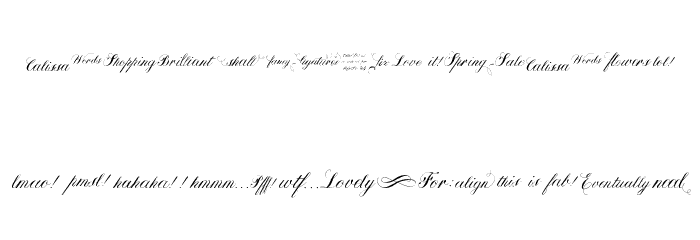 Calissa Words Shopping Brilliant shall fancy ligatures for Love it! Spring Sale Calissa Words flowers lol!
lmao! pmsl! hahaha!! hmmm... Pfff! wtf... Lovely For: align this is fab! Eventually need